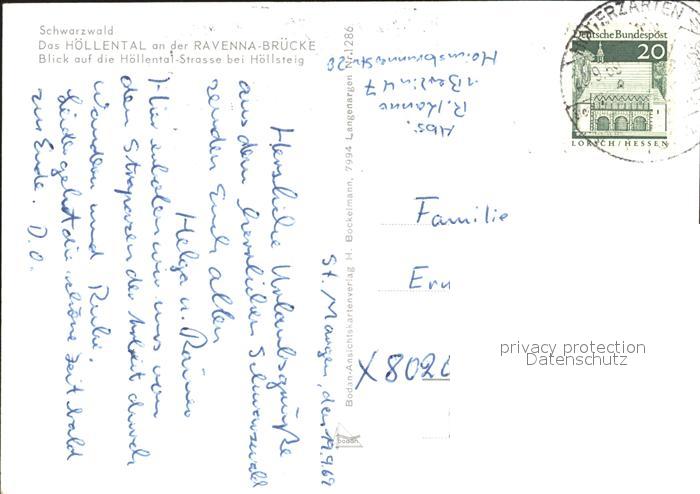 Schwarzwald
Das HÖLLENTAL an der RAVENNA-BRÜCKE
Blick auf die Höllental-Strasse bei Höllsteig
St. Märgen, den 19.9.69
Herzliche Urlaubsgrüße
aus dem herrlichen Schwarzwald
senden Euch allen
Helga u. Rainer
Hier erholen wir uns von
den Strapazen der Arbeit durch
Wandern und Ruhe.
Leider geht die schöne Zeit bald
zu Ende. D.O.
Bodan-Ansichtskartenverlag H. Bockelmann, 7994 Langenargen Nr. 1286
bodan
Abs.
R. Hanno
1 Berlin 47
Familie
Ern
X 802
HINTERZARTEN
Deutsche Bundespost
20
LORSCH / HESSEN
privacy protection
Datenschutz